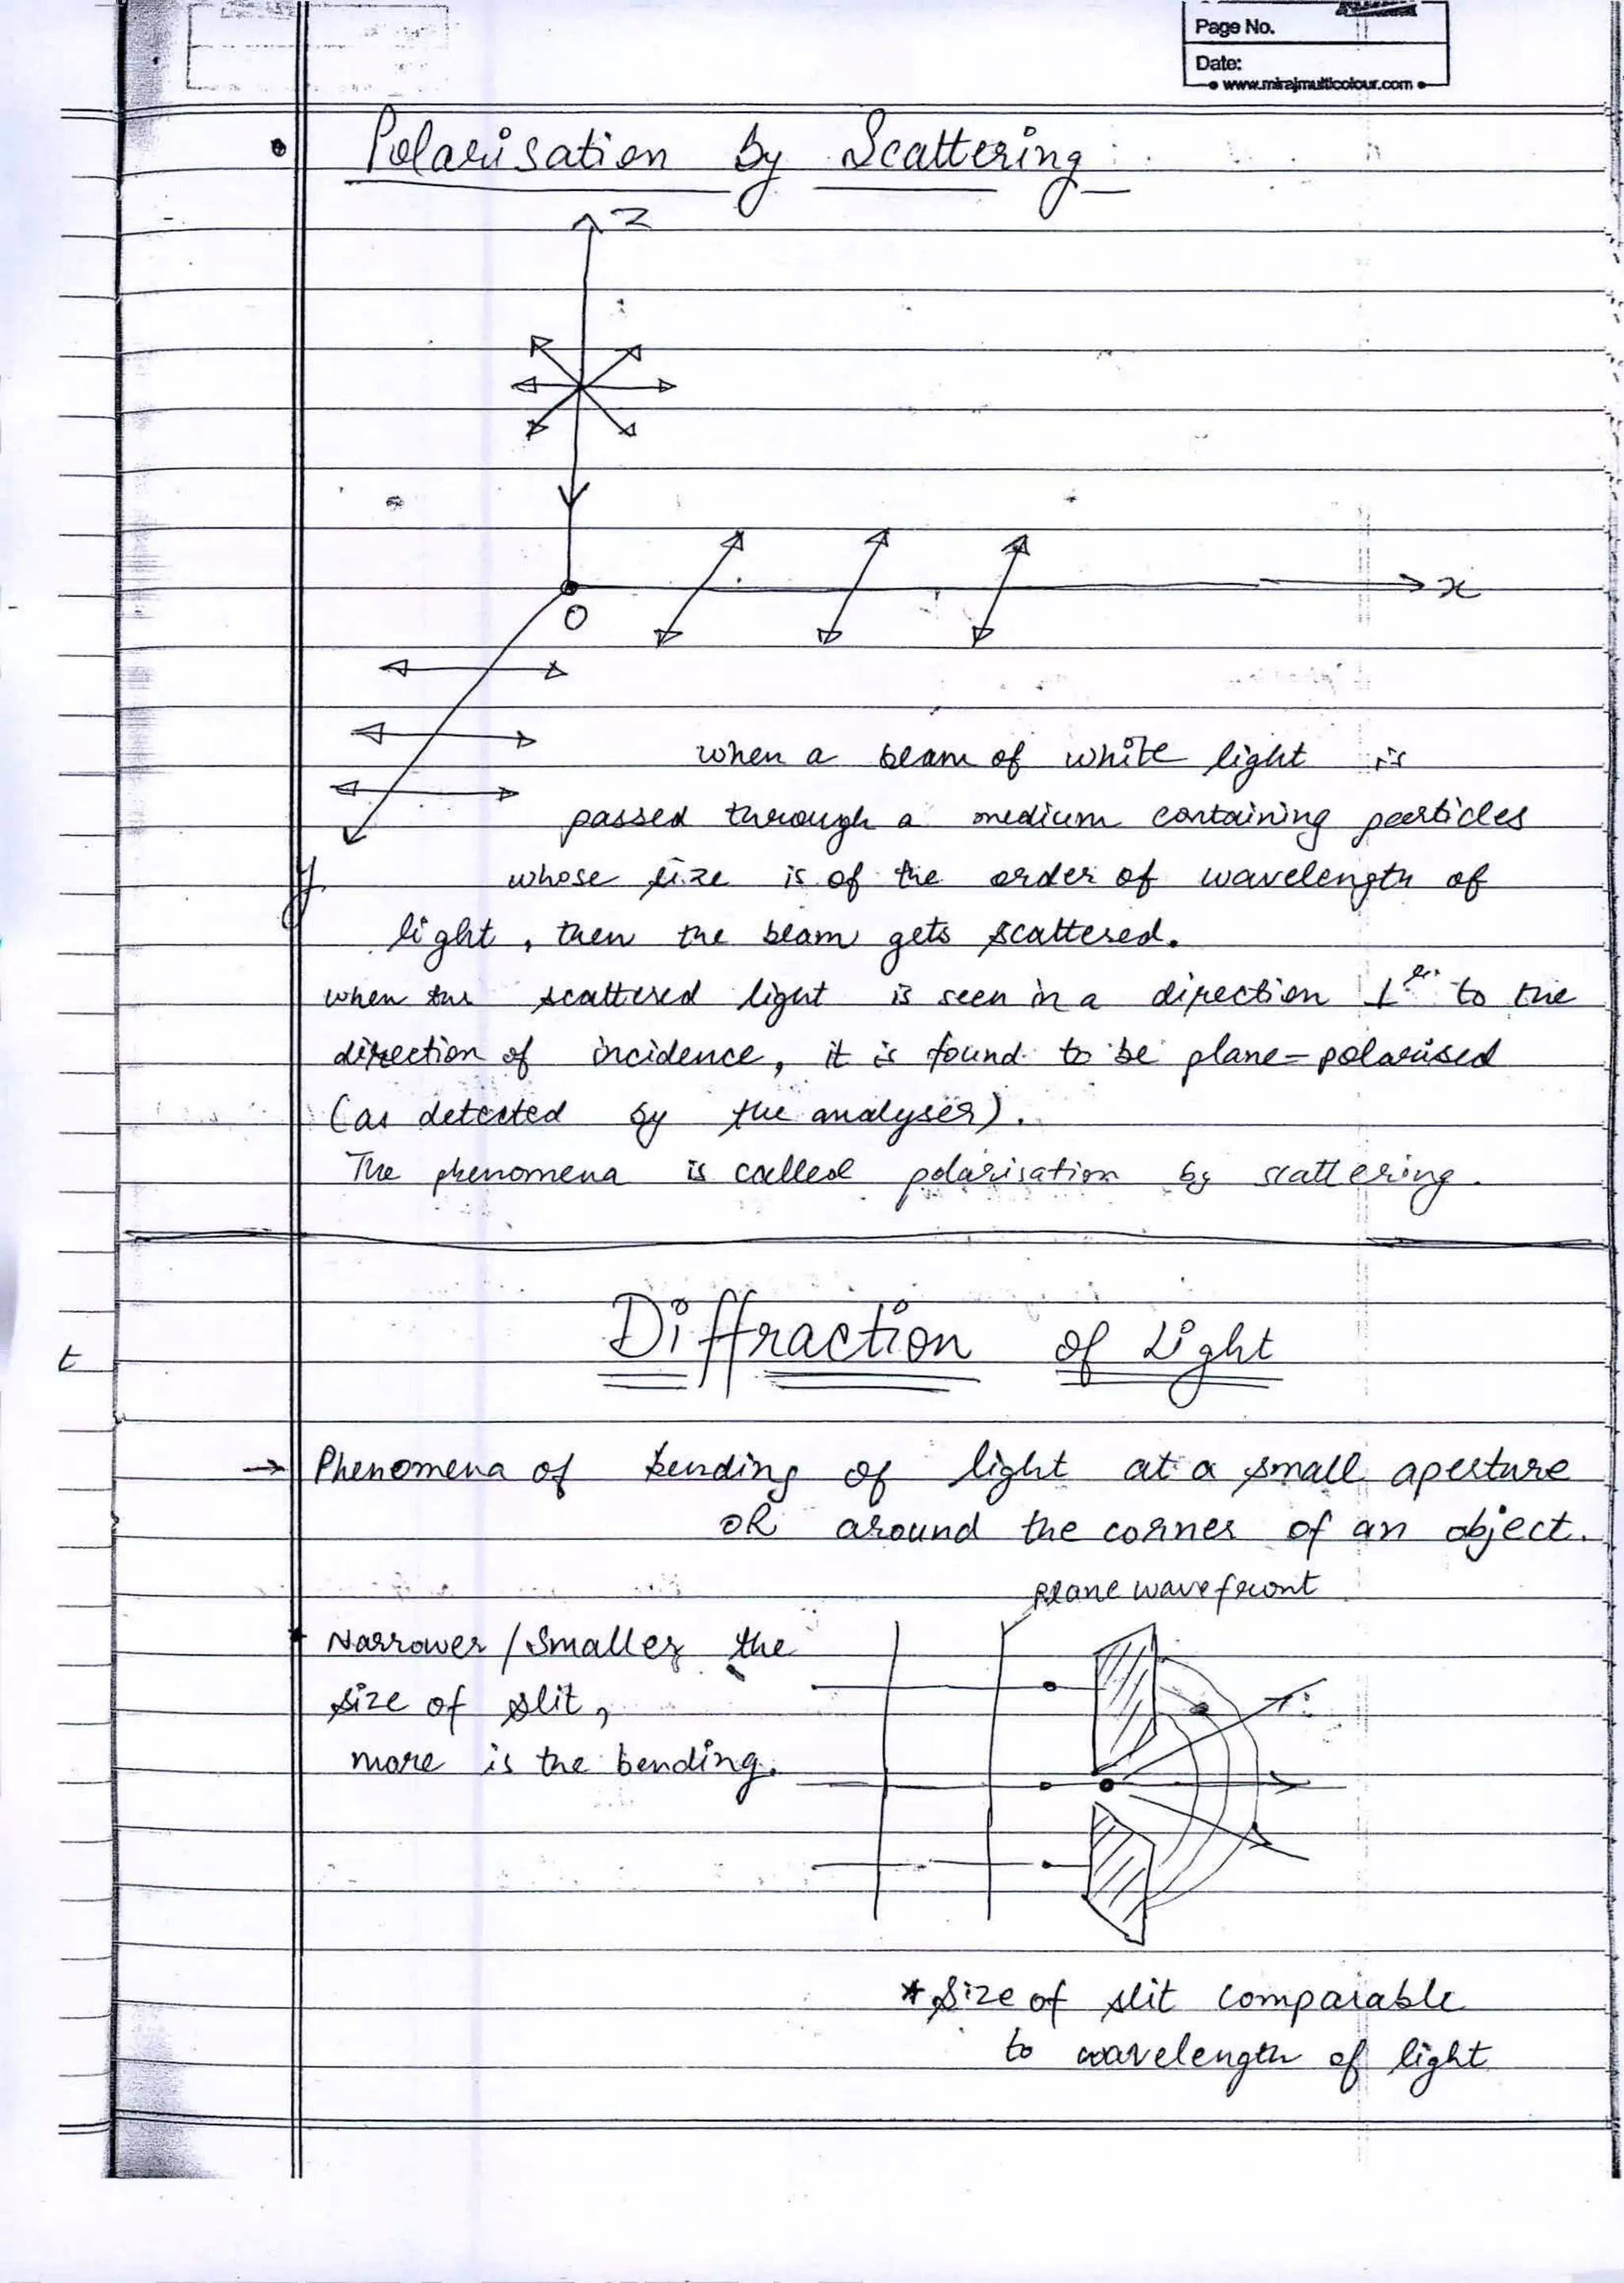 Page No.
Date:
www.mirajmulticolour.com
Polarisation by Scattering
z
O
x
y
when a beam of white light is
passed through a medium containing particles
whose size is of the order of wavelength of
light, then the beam gets scattered.
when the scattered light is seen in a direction ⊥er to the
direction of incidence, it is found to be plane-polarised
(as detected by the analyser).
The phenomena is called polarisation by scattering.
Diffraction of Light
t
→ Phenomena of bending of light at a small aperture
OR around the corner of an object.
plane wavefront
* Narrower/Smaller the
size of slit,
more is the bending.
* Size of slit comparable
to wavelength of light